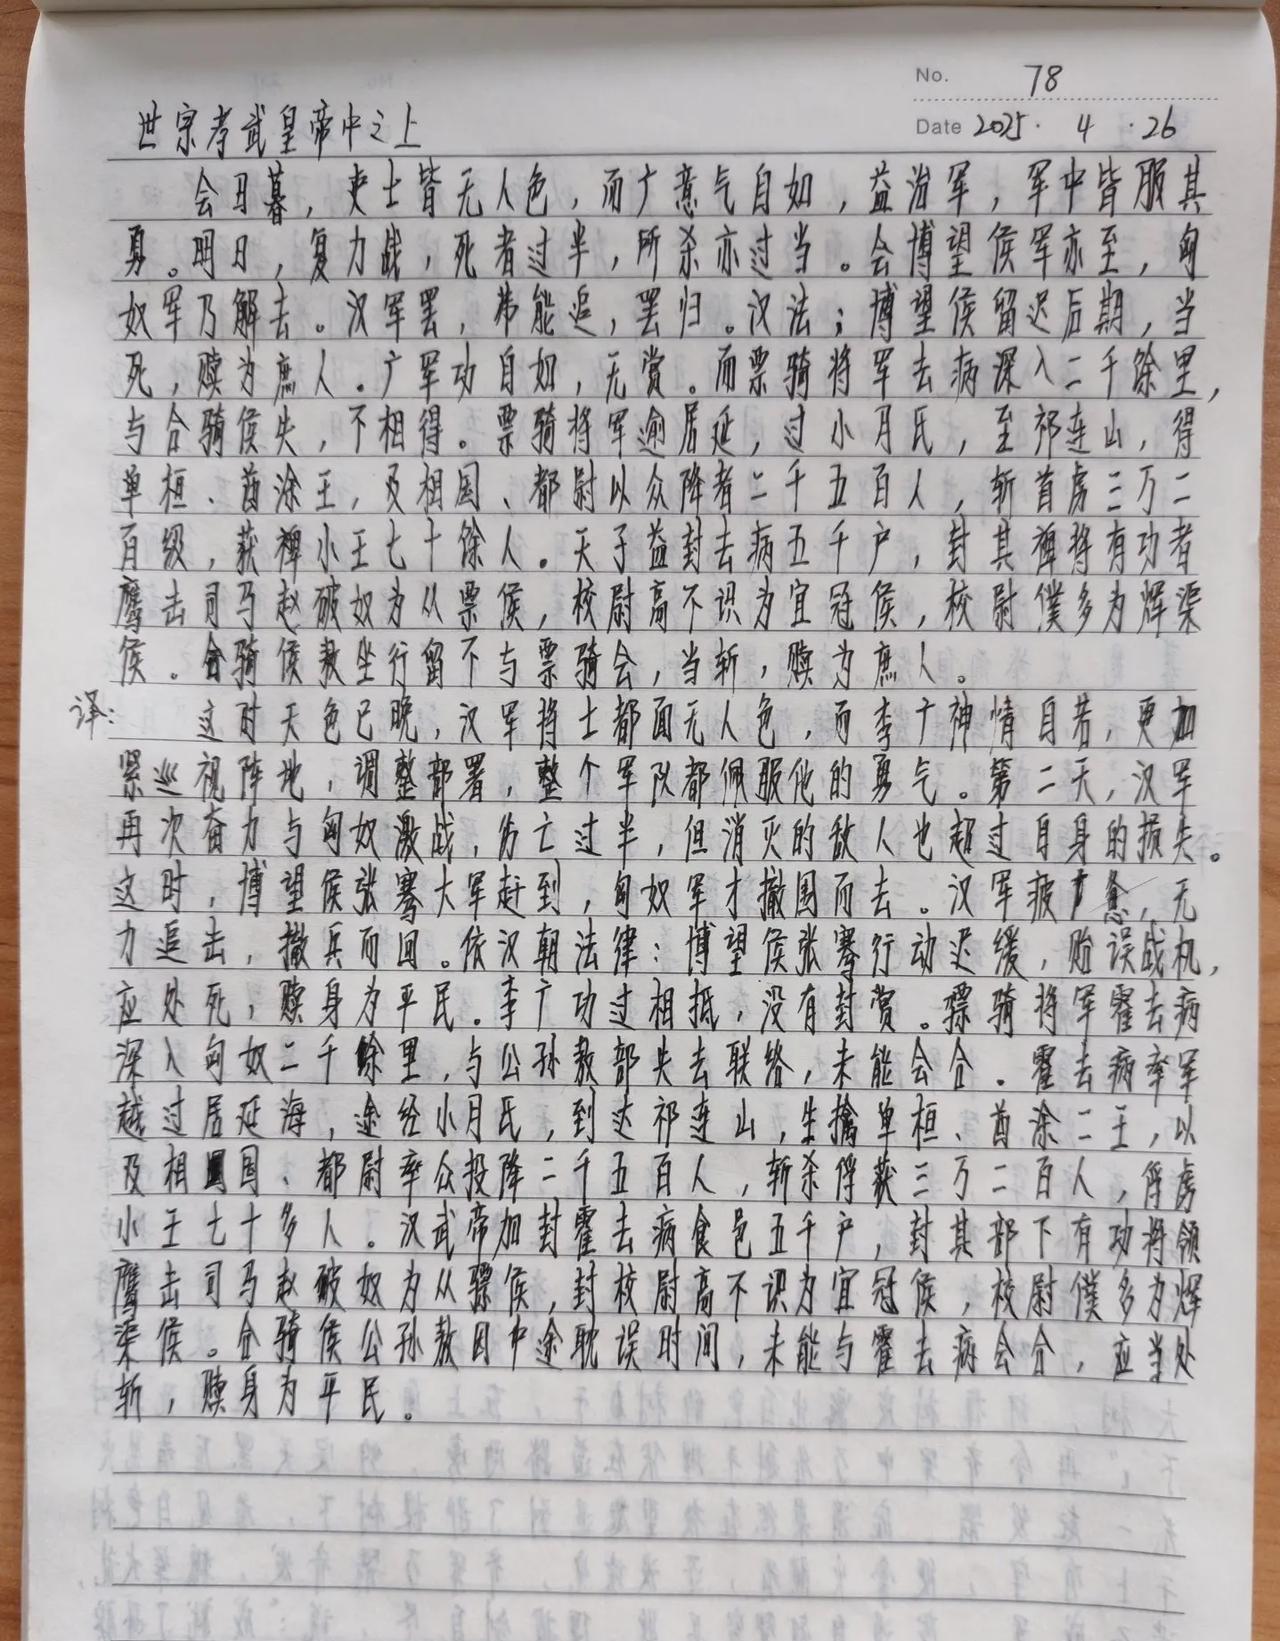 No. 78
世宗孝武皇帝中之上
Date 2025. 4 .26
会日暮，吏士皆无人色，而广意气自如，益治军，军中皆服其
勇。明日，复力战，死者过半，所杀亦过当。会博望侯军亦至，匈
奴军乃解去。汉军罢，弗能追，罢归。汉法；博望侯留迟后期，当
死，赎为庶人。广军功自如，无赏。而票骑将军去病深入二千馀里，
与合骑侯失，不相得。票骑将军逾居延，过小月氏，至祁连山，得
单桓、酋涂王，及相国、都尉以众降者二千五百人，斩首虏三万二
百级，获裨小王七十馀人。天子益封去病五千户，封其裨将有功者
鹰击司马赵破奴为从票侯，校尉高不识为宜冠侯，校尉仆多为辉渠
侯。合骑侯敖坐行留不与票骑会，当斩，赎为庶人。
译：这时天色已晚，汉军将士都面无人色，而李广神情自若，更加
紧巡视阵地，调整部署，整个军队都佩服他的勇气。第二天，汉军
再次奋力与匈奴激战，伤亡过半，但消灭的敌人也超过自身的损失。
这时，博望侯张骞大军赶到，匈奴军才撤围而去。汉军疲惫，无
力追击，撤兵而回。依汉朝法律：博望侯张骞行动迟缓，贻误战机，
应处死，赎身为平民。李广功过相抵，没有封赏。骠骑将军霍去病
深入匈奴二千馀里，与公孙敖部失去联络，未能会合。霍去病率军
越过居延海，途经小月氏，到达祁连山，生擒单桓、酋涂二王，以
及相国、都尉率众投降二千五百人，斩杀俘获三万二百人，俘虏
小王七十多人。汉武帝加封霍去病食邑五千户，封其部下有功将领
鹰击司马赵破奴为从骠侯，封校尉高不识为宜冠侯，校尉仆多为辉
渠侯。合骑侯公孙敖因中途耽误时间，未能与霍去病会合，应当处
斩，赎身为平民。